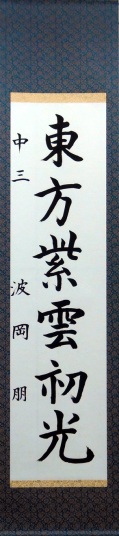 東方紫雲初光
中三 波岡朋